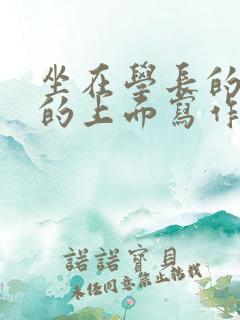 坐在學長的
的上面寫作
諾諾寶貝
未任同意禁止轉載